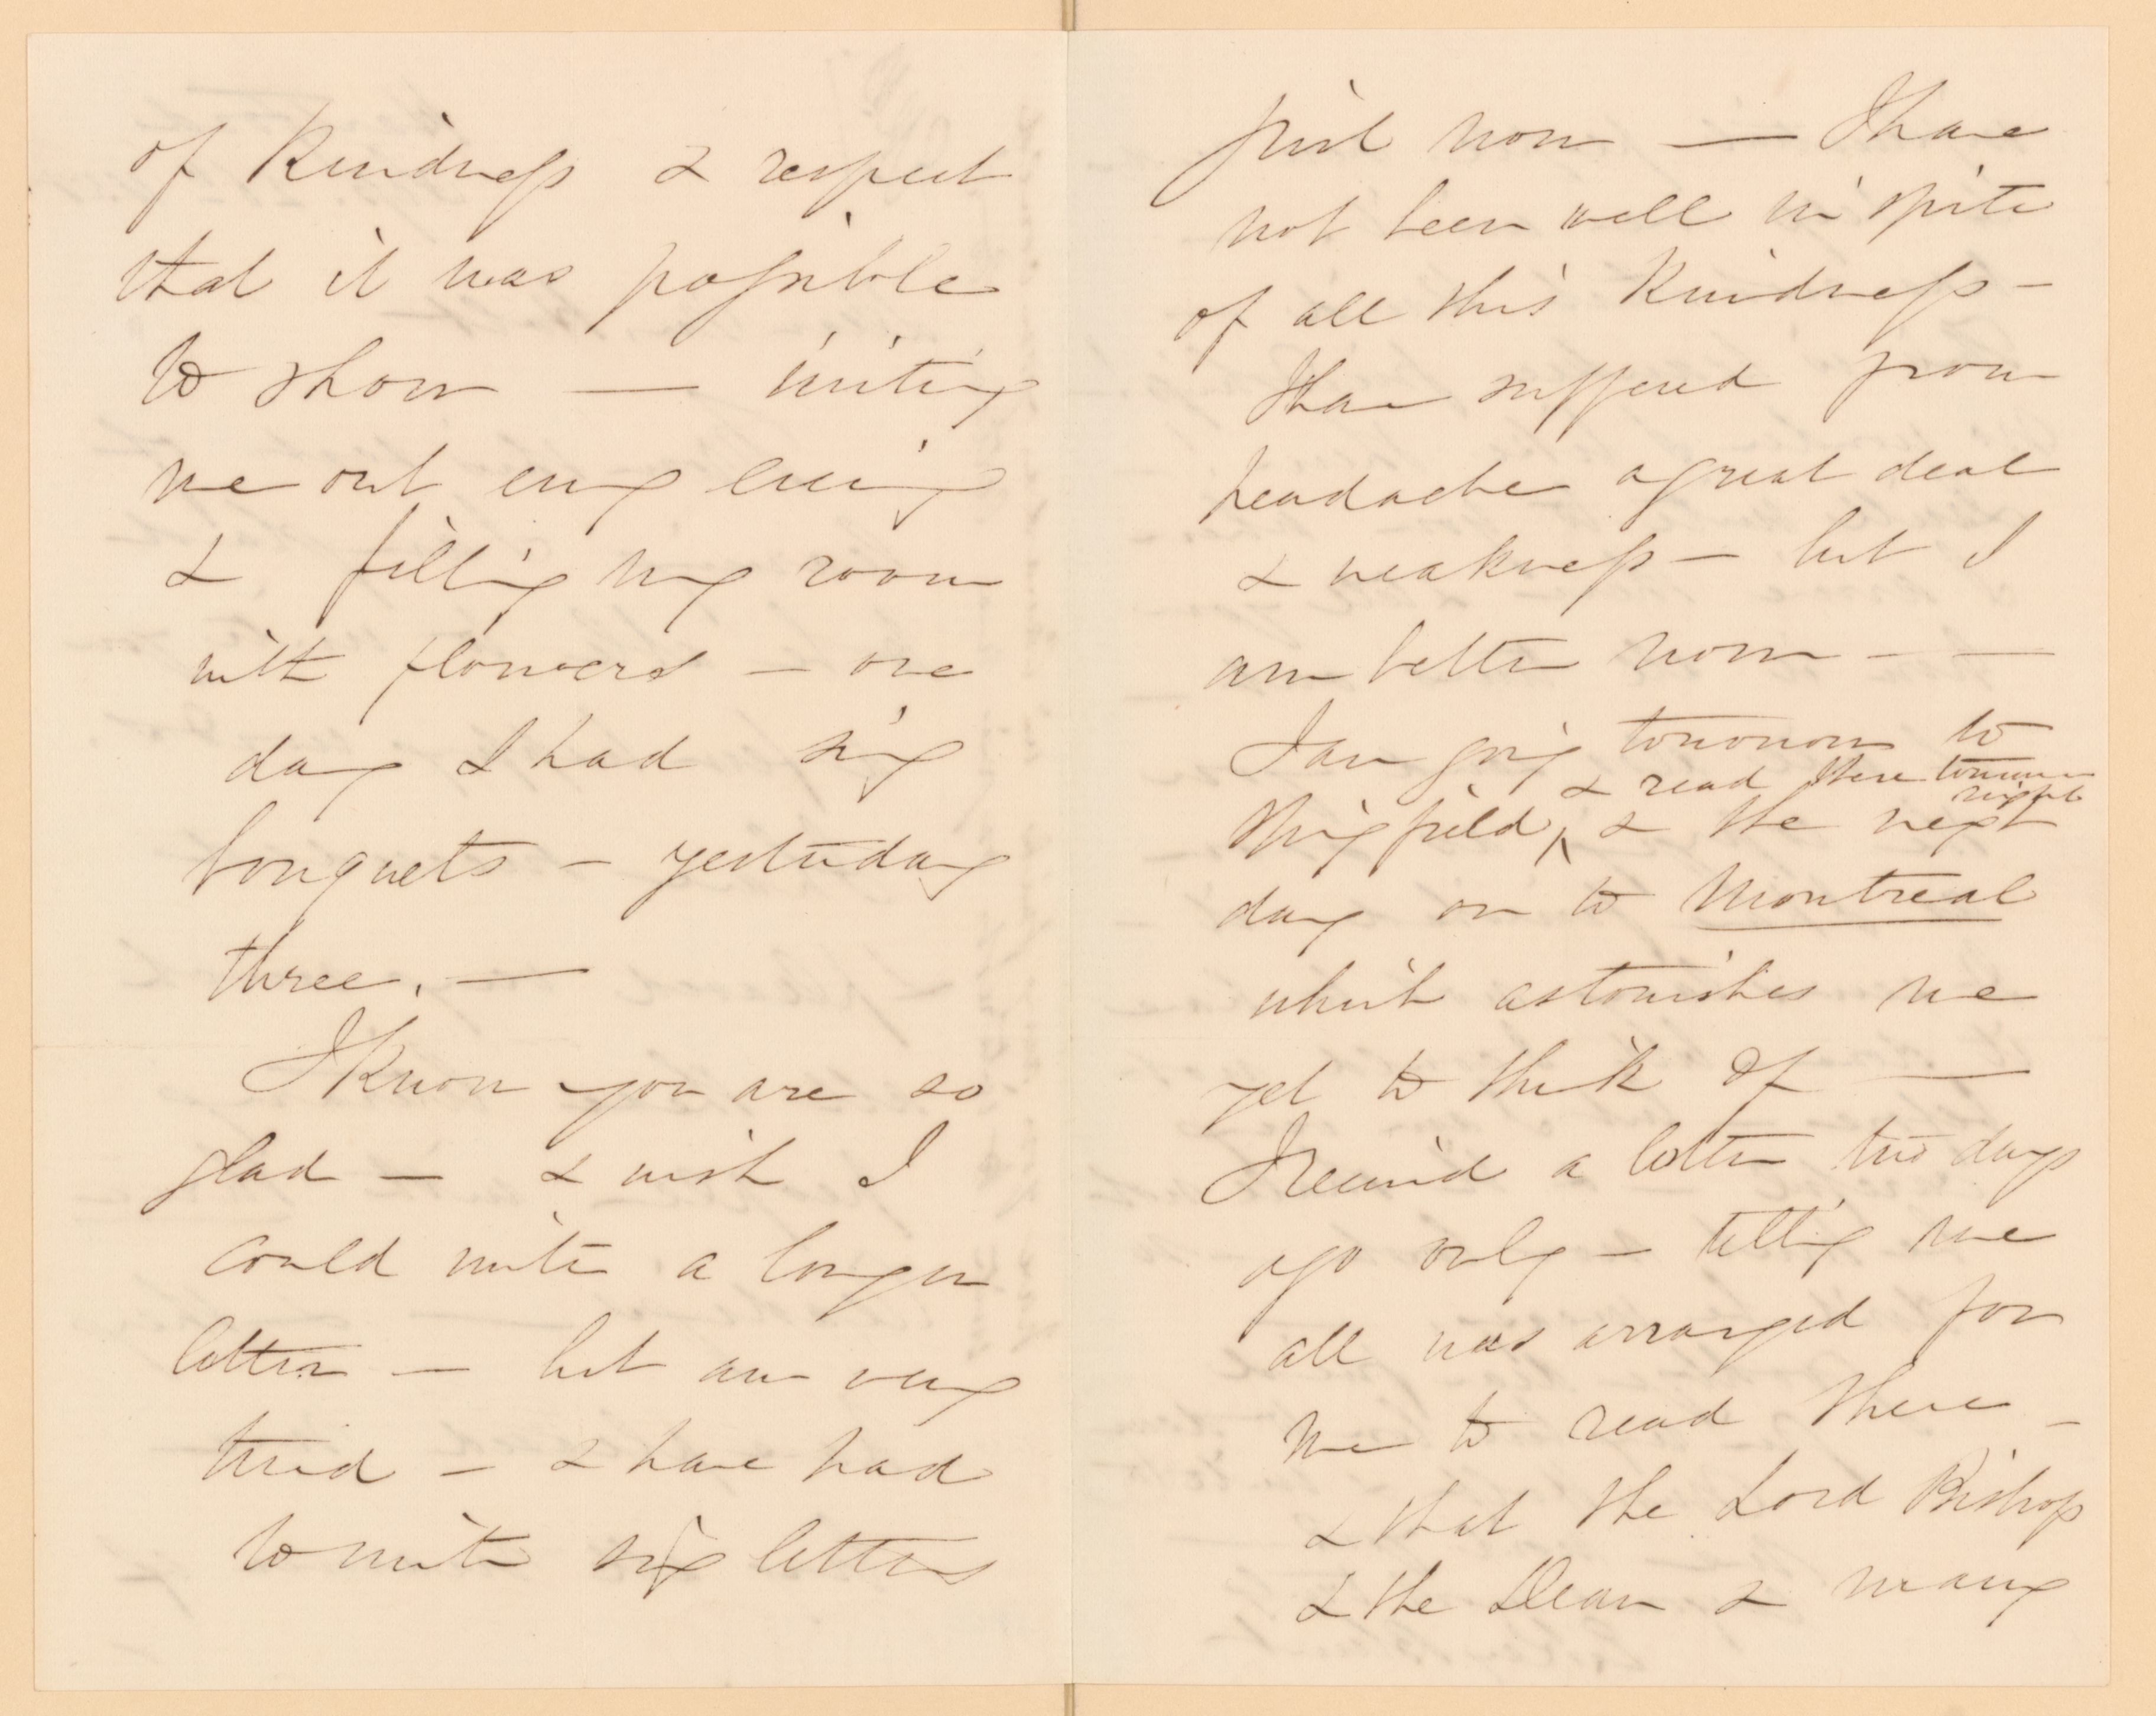 of kindness & respect
that it was possible
to show — inviting
me out every evening
& filling my room
with flowers — one
day I had six
bouquets — yesterday
three. —
I know you are so
glad — & wish I
could write a longer
letter — but am very
tired — & have had
to write six letters
just now — I have
not been well in spite
of all this kindness —
I have suffered from
headache a great deal
& weakness — but I
am better now — —
I am going tomorrow to
& read there tomorrow
night
Springfield, & the next
day on to Montreal
which astonishes me
yet to think of —
I received a letter two days
ago only — telling me
all was arranged for
me to read there —
& that the Lord Bishop
& the Dean & many